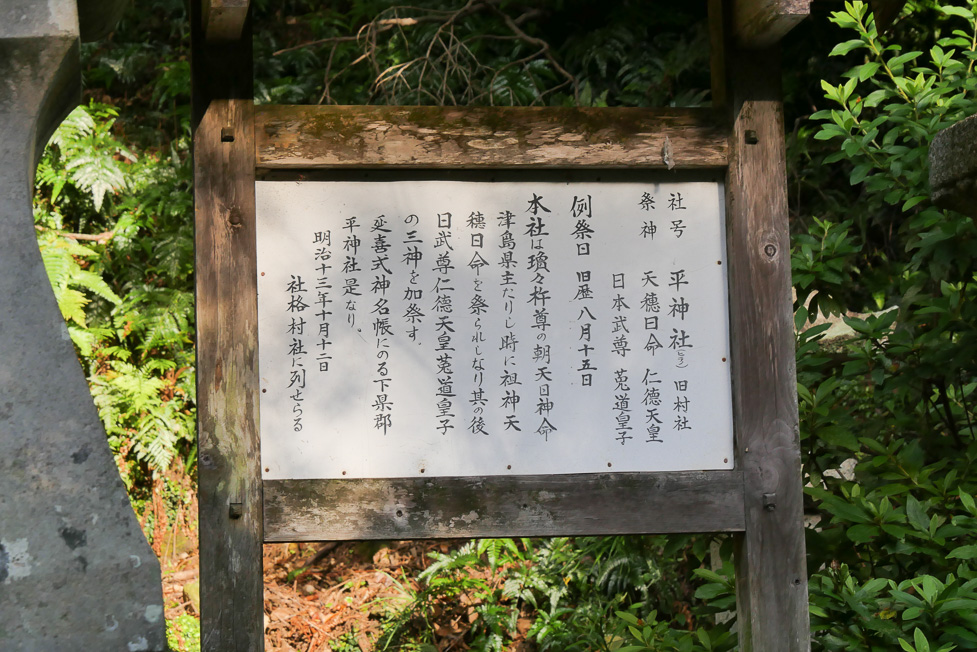 社号 平神社(ヒラ) 旧村社
祭神 天穂日命 仁徳天皇
日本武尊 莵道皇子
例祭日 旧歴八月十五日
本社は瓊々杵尊の朝天日神命
津島県主たりし時に祖神天
穂日命を祭られしなり其の後
日武尊仁徳天皇莵道皇子
の三神を加祭す
延喜式神名帳にのる下県郡
平神社是なり。
明治十三年十月十二日
社格村社に列せらる